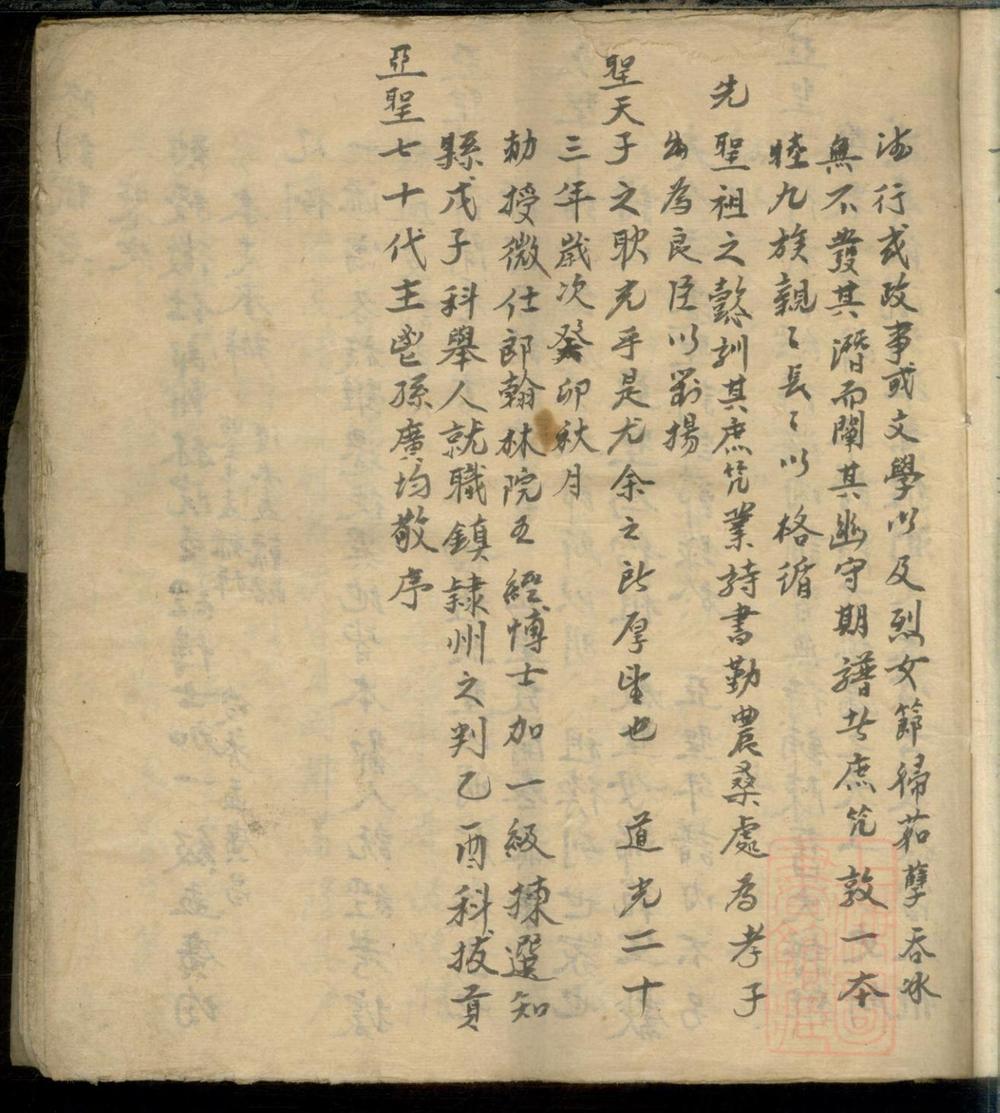 德行或政事或文學以及烈女節婦茹孽吞冰
無不發其潛而闡其幽守期譜者庶幾敦一本
睦九族親〻長〻以格循
先聖祖之懿訓其庶幾業詩書勤農桑處為孝子
出為良臣以對揚
聖天子之耿光乎是尤余之所厚望也 道光二十
三年歲次癸卯秋月
勅授徵仕郎翰林院五經博士加一級揀選知
縣戊子科舉人就職鎮隸州之判乙酉科拔貢
亞聖七十代主鬯孫廣均敬序